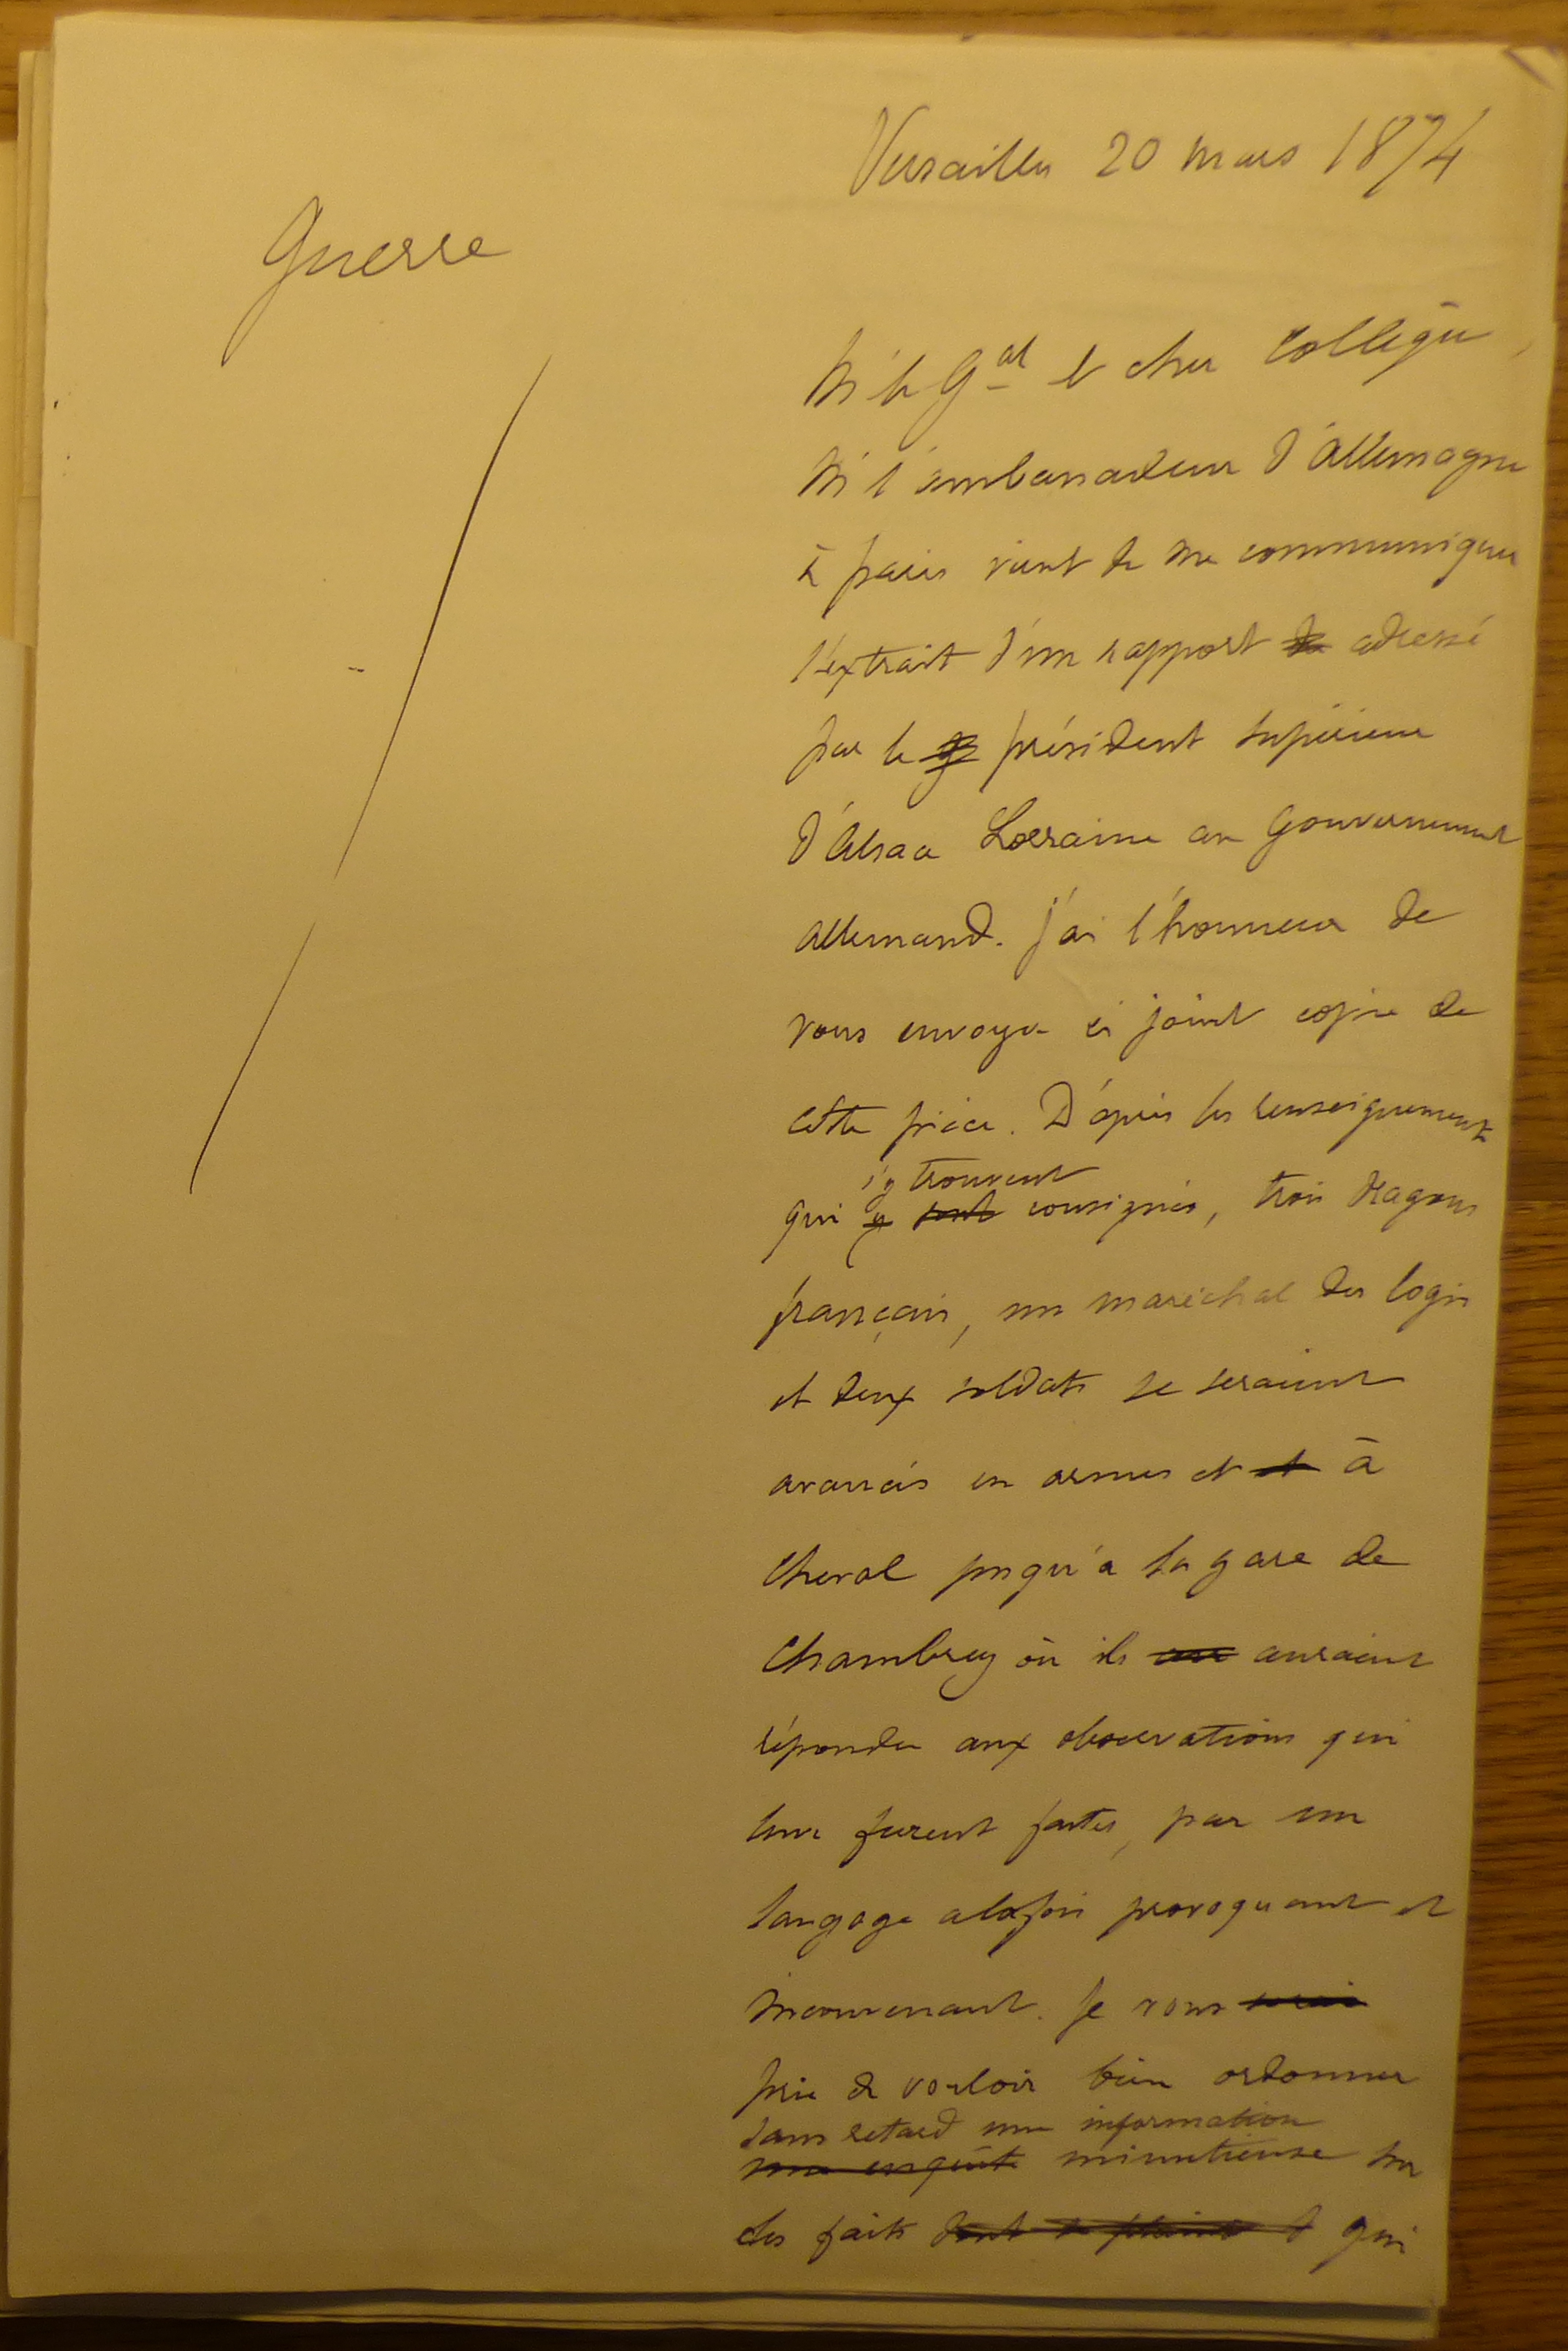 Versailles 20 mars 1874
Guerre
Mr le Gal et cher collègue,
Mr l'ambassadeur d'Allemagne
à Paris vient de me communiquer
l'extrait d'un rapport adressé
par le président supérieur
d'Alsace Lorraine au Gouvernement
allemand. J'ai l'honneur de
vous envoyer ci joint copie de
cette pièce. D'après les renseignements
s'y trouvent
qui y sont consignés, trois dragons
français, un maréchal des logis
et deux soldats se seraient
avancés en armes et et à
cheval jusqu'à la gare de
Chambrey où ils auraient
répondu aux observations qui
leur furent faites, par un
langage à la fois provoquant et
inconvenant. Je vous
prie de vouloir bien ordonner
sans retard une information
une enquête minutieuse sur
des faits dont se plaint qui